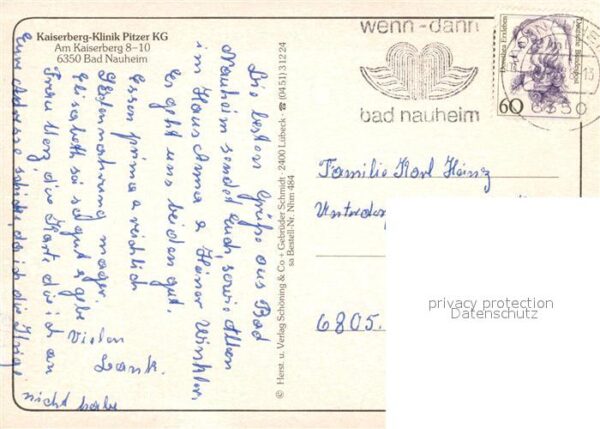 Kaiserberg-Klinik Pitzer KG
Am Kaiserberg 8-10
6350 Bad Nauheim
Die besten Grüße aus Bad
Nauheim sendet Euch, sowie Allen
im Haus Anna & Heiner Winkler
Es geht uns beiden gut.
Essen prima & reichlich
mager.
Elisabeth sei so gut & gebe
Frau Merz, die Karte die ich an
Eure Adresse schickt, da ich die Ihrige
nicht habe
Vielen
Dank.
© Herst. u. Verlag Schöning & Co + Gebrüder Schmidt · 2400 Lübeck · ☎ (04 51) 3 12 24
sa Bestell-Nr. Nhm 484
wenn-dann
bad nauheim
Deutsche Bundespost
60
6350
Familie Karl Heinz
6805.
privacy protection
Datenschutz